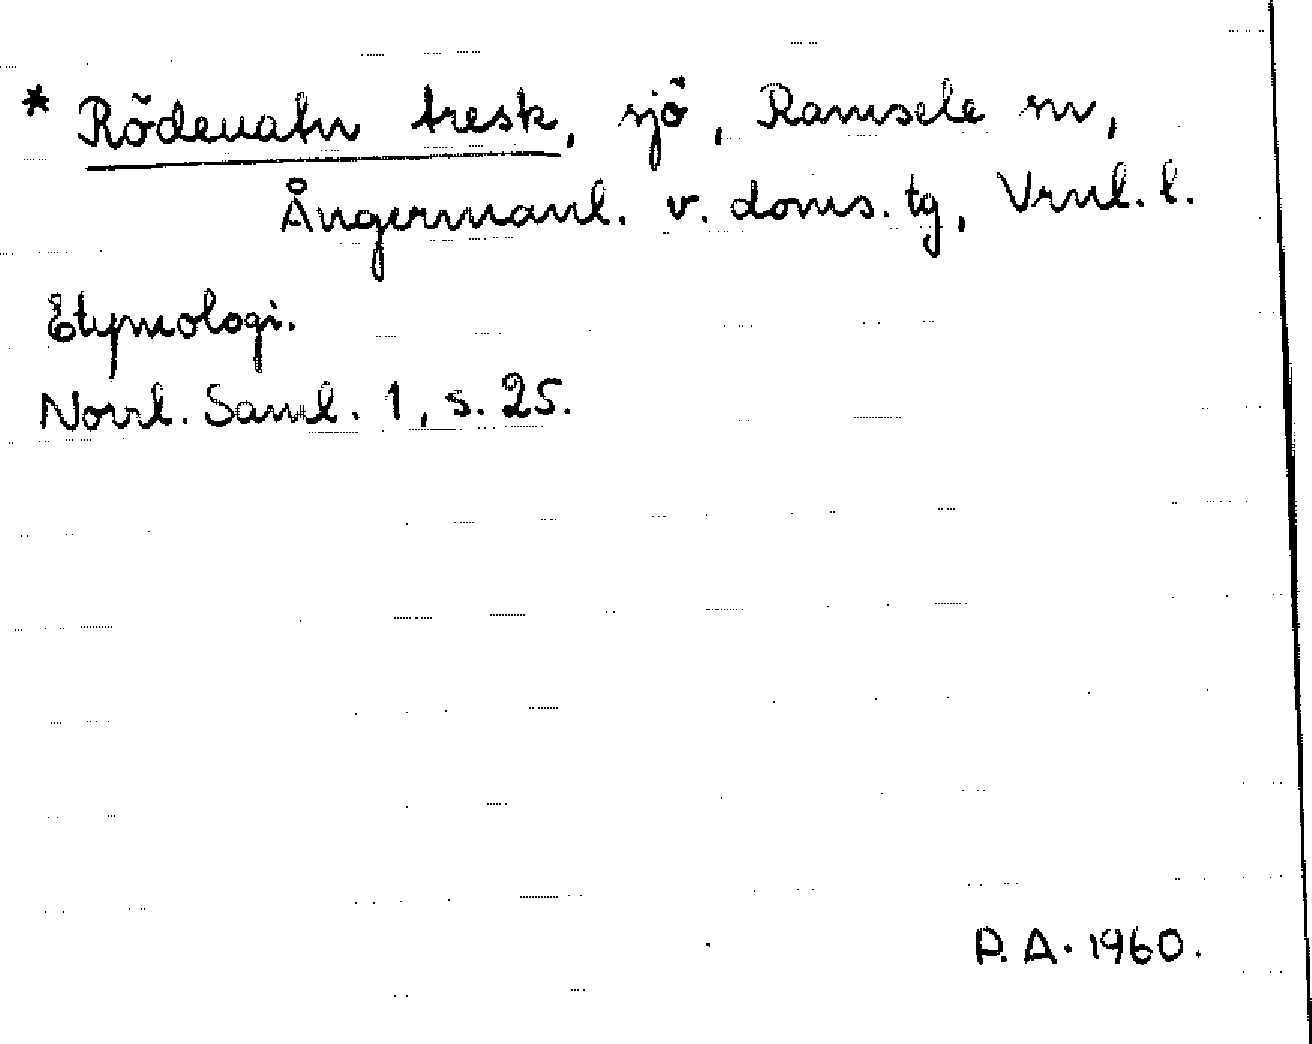 * Rödeuatn tresk, sjö, Ramsele sn,
Ångermanl. v. doms. tg, Vrnl. l.
Etymologi.
Norrl. Saml. 1, s. 25.
P. A. 1960.